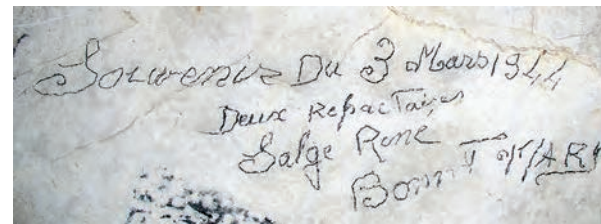 Souvenir Du 3 Mars 1944
Deux Refractaires
Salge Rene